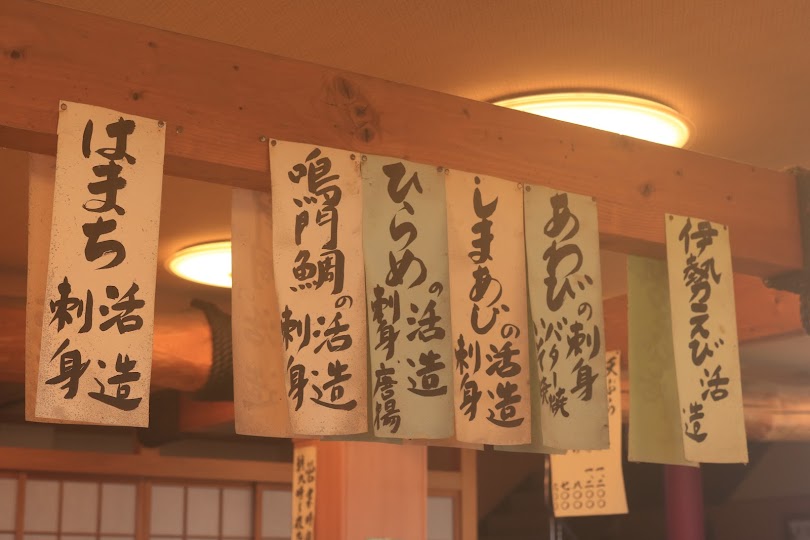 伊勢えび活造
あわびの刺身
バター焼
しまあじの活造
刺身
ひらめの活造
刺身唐揚
鳴門鯛の活造
刺身
はまち
活造
刺身